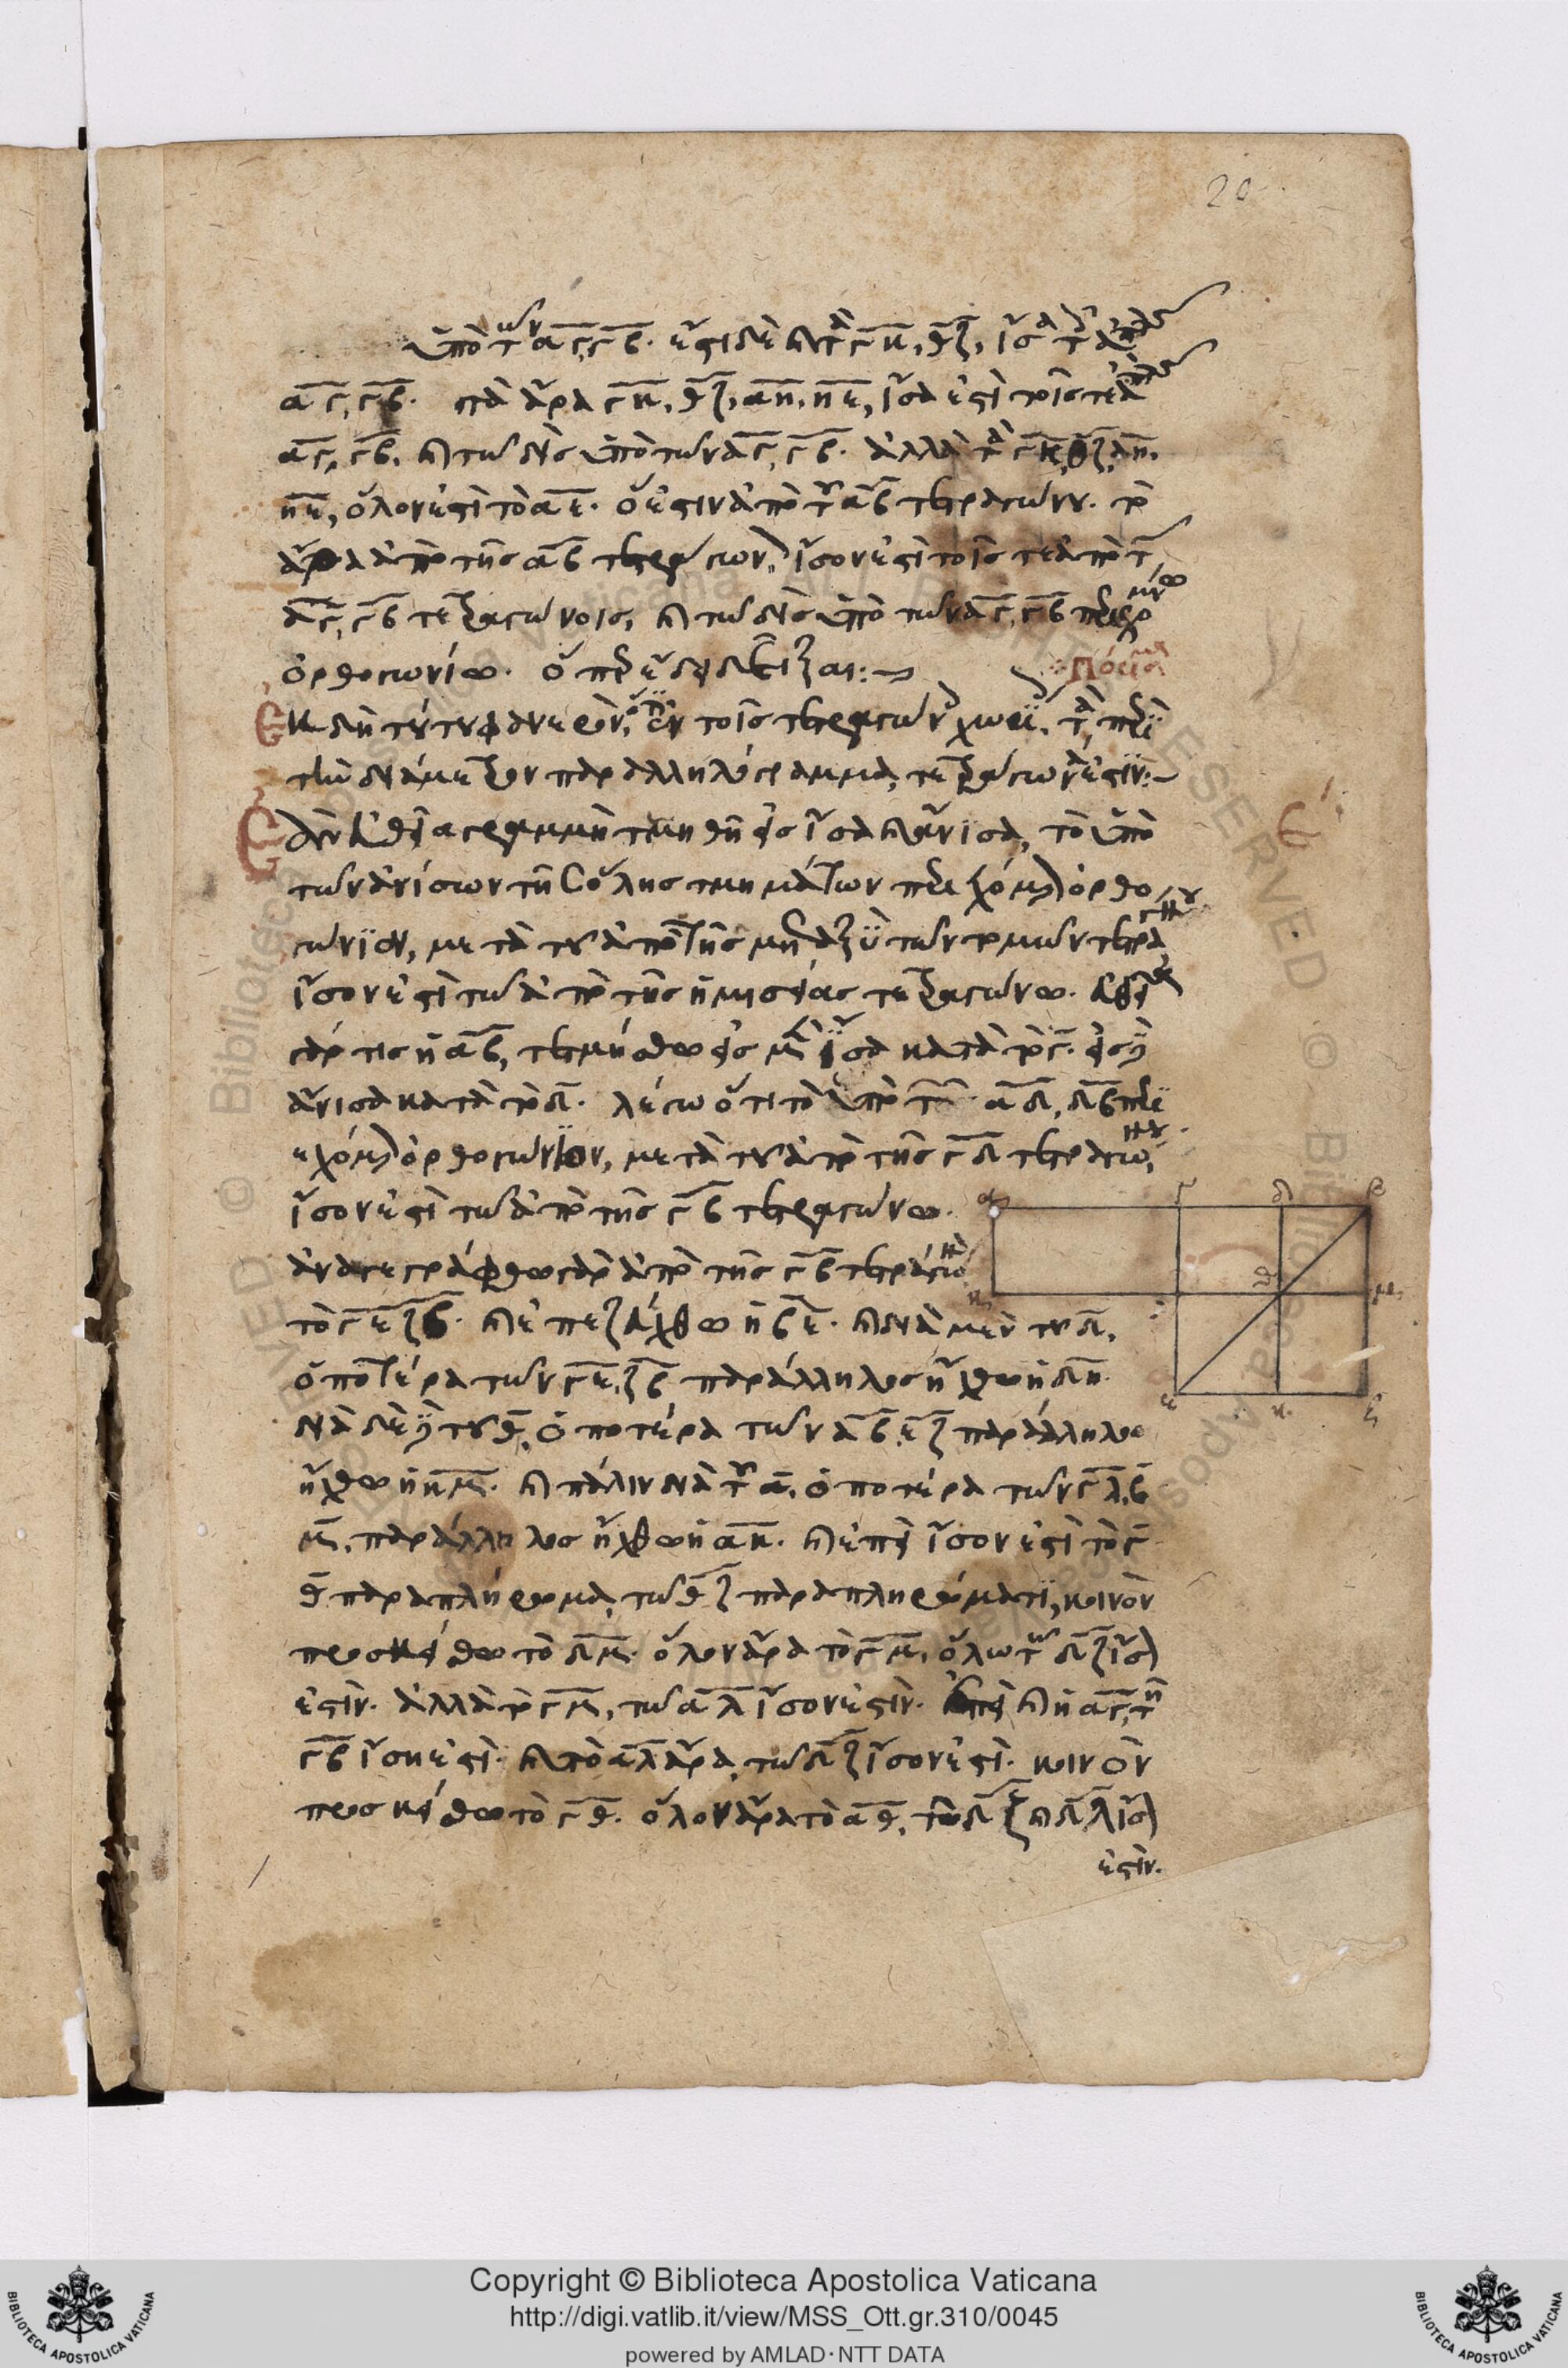 20
ὑπὸ τῶν αγ, γβ. ἔστι δὲ καὶ τὰ γκ, θζ, ἴσα τοῖς ἀπὸ τῶν
αγ, γβ. τὰ ἄρα γκ, θζ, αη, ηε, ἴσα ἐστὶ τοῖς τε ἀπὸ τῶν
αγ, γβ, καὶ τῶ δὶς ὑπὸ τῶν αγ, γβ. ἀλλὰ τὰ γκ, θζ, αη,
ηε, ὅλον ἐστὶ τὸ αε. ὅ ἐστιν ἀπὸ τῆς αβ τετράγωνον. τὸ
ἄρα ἀπὸ τῆς αβ τετράγωνον, ἴσον ἐστὶ τοῖς τε ἀπὸ τῶν
αγ, γβ τετραγώνοις, καὶ τῶ δὶς ὑπὸ τῶν αγ, γβ περιεχομένω
ὀρθογωνίω. ὅπερ ἔδει δεῖξαι:
πόρισμα
Ἐκ δὴ τούτου φανερὸν, ὅτι ἐν τοῖς τετραγώνοις χωρίοις, τὰ περὶ
τὴν διάμετρον παραλληλόγραμμα, τετράγωνά ἐστιν:
Ἐὰν εὐθεῖα γραμμὴ τμηθῆ εἰς ἴσα καὶ ἄνισα, τὸ ὑπὸ
ε΄
τῶν ἀνίσων τῆς ὅλης τμημάτων περιεχόμενον ὀρθο
γώνιον, μετὰ τοῦ ἀπὸ τῆς μεταξὺ τῶν τομῶν τετραγώνου
ἴσον ἐστὶ τῶ ἀπὸ τῆς ἡμισείας τετραγώνω. εὐθεῖα
γάρ τις ἡ αβ, τετμήσθω εἰς μὲν ἴσα κατὰ τὸ γ. εἰς δὲ
ἄνισα κατὰ τὸ δ. λέγω ὅτι τὸ ὑπὸ τῶν αδ, δβ περι
εχόμενον ὀρθογώνιον, μετὰ τοῦ ἀπὸ τῆς γδ τετραγώνου,
ἴσον ἐστὶ τῶ ἀπὸ τῆς γβ τετραγώνω.
ἀναγεγράφθω γὰρ ἀπὸ τῆς γβ τετράγωνον
τὸ γεζβ. καὶ ἐπεζεύχθω ἡ βε. καὶ διὰ μὲν τοῦ δ,
ὁποτέρα τῶν γε, ζβ παράλληλος ἤχθω ἡ δη.
διὰ δὲ τοῦ θ, ὁποτέρα τῶν αβ, εζ παράλληλος
ἤχθω ἡ κμ. καὶ πάλιν διὰ τοῦ α, ὁποτέρα τῶν γλ, β
μ, παράλληλος ἤχθω ἡ ακ. καὶ ἐπεὶ ἴσον ἐστὶ τὸ γ
θ παραπλήρωμα, τῶ θζ παραπληρώματι, κοινὸν
προσκείσθω τὸ δμ. ὅλον ἄρα τὸ γμ, ὅλω τῶ δζ ἴσον
ἐστὶν. ἀλλὰ τὸ γμ, τῶ αλ ἴσον ἐστὶν. ἐπεὶ καὶ ἡ αγ, τῆ
γβ ἴση ἐστὶ. καὶ τὸ αλ ἄρα, τῶ δζ ἴσον ἐστὶ. κοινὸν
προσκείσθω τὸ γθ. ὅλον ἄρα τὸ αθ, τῶ δζ καὶ δλ ἴσον
ἐστὶν.
α γ δ β
κ θ μ
ε ζ
Copyright © Biblioteca Apostolica Vaticana
http://digi.vatlib.it/view/MSS_Ott.gr.310/0045
powered by AMLAD·NTT DATA
BIBLIOTECA APOSTOLICA VATICANA
BIBLIOTECA APOSTOLICA VATICANA